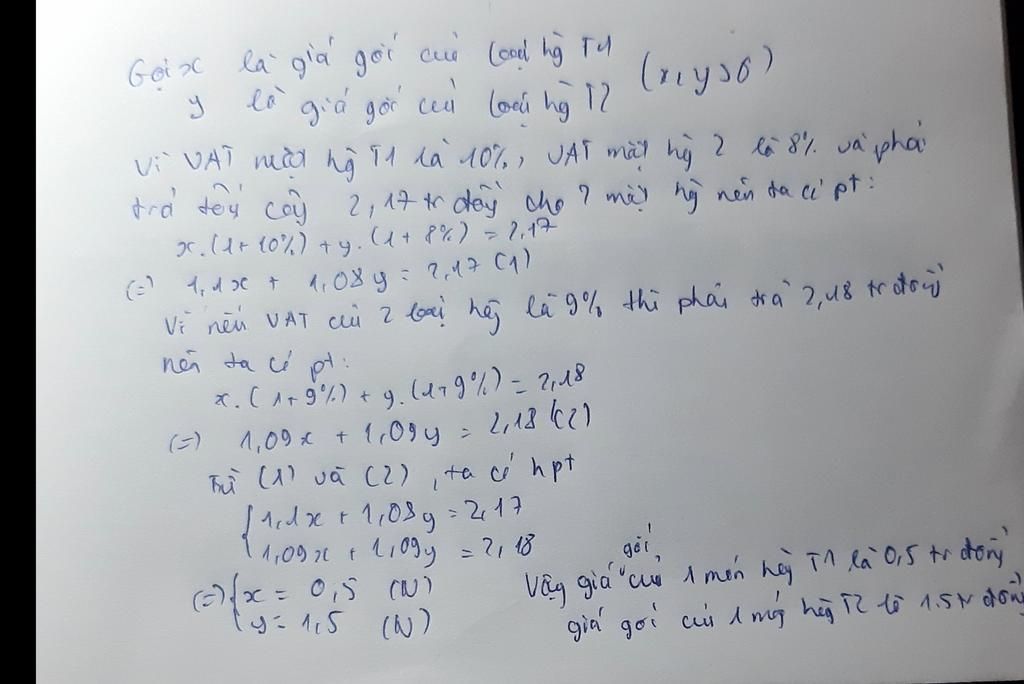 Gọi x là giá gốc củ loại hg T1
y là giá gốc củ loại hg T2 (x, y > 0)
Vì VAT mặt hg T1 là 10%, VAT mặt hg 2 là 8% và phải
trả tổg cộg 2,17 tr đồg cho 2 mặt hg nên ta có pt:
x.(1+10%) + y.(1+8%) = 2,17
(=) 1,1x + 1,08y = 2,17 (1)
Vì nếu VAT củ 2 loại hg là 9% thì phải trả 2,18 tr đồg
nên ta có pt:
x.(1+9%) + y.(1+9%) = 2,18
(=) 1,09x + 1,09y = 2,18 (2)
Từ (1) và (2), ta có hpt
{ 1,1x + 1,08y = 2,17
1,09x + 1,09y = 2,18
(=) { x = 0,5 (N)
y = 1,5 (N)
Vậy giá gốc củ 1 món hg T1 là 0,5 tr đồg
giá gốc củ 1 món hg T2 là 1.5 tr đồg